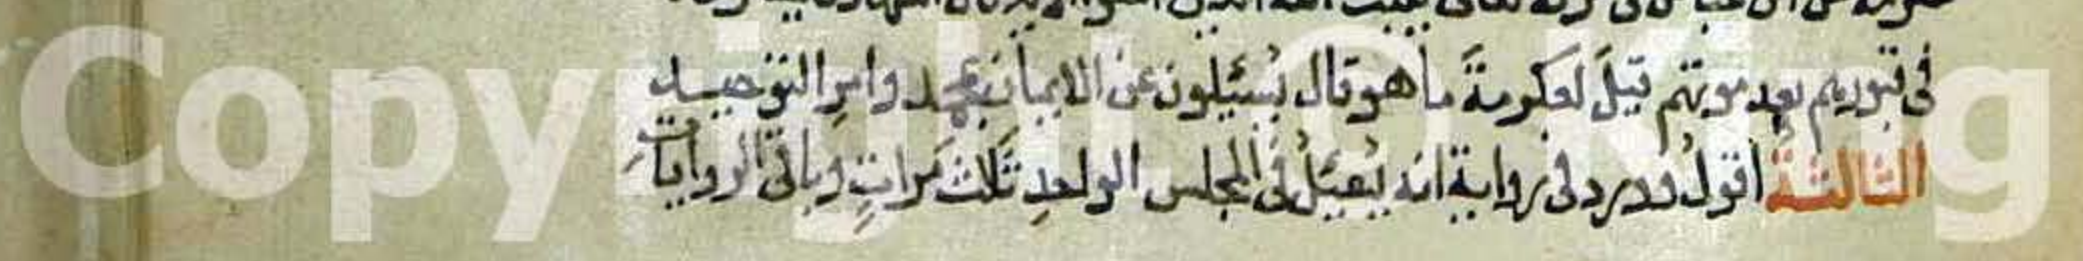 في قبورهم بعد موتهم قيل لعكرمة ما هو قال يسئلون عن الايمان بمحمد وامر التوحيد
الثالثة اقول ورد في رواية انه يسئل في المجلس الواحد ثلث مرات وباقي الروايات
Copyright © King